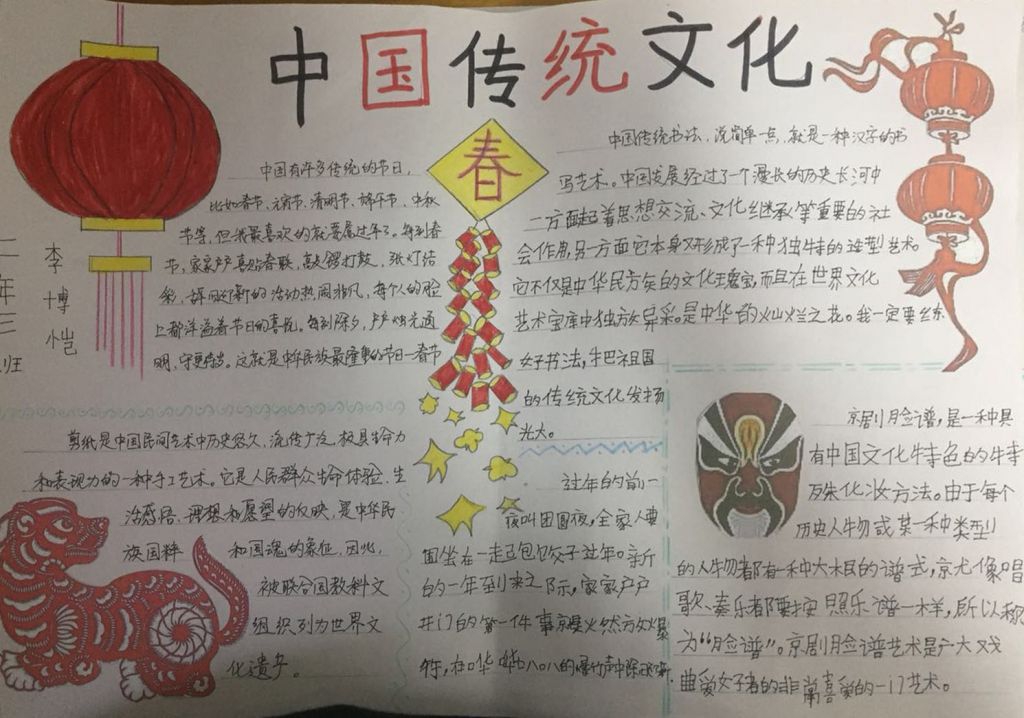 中国传统文化
春
李博恺
二年三班
中国有许多传统的节日,
比如春节、元宵节、清明节、端午节、中秋
节等,但我最喜欢的就要属过年了。每到春
节,家家户户喜贴春联,敲锣打鼓,张灯结
彩,辞旧迎新的活动热闹非凡,每个人的脸
上都洋溢着节日的喜悦。每到除夕,户户烛光通
明,守更待岁。这就是中华民族最隆重的节日—春节
中国传统书法,说简单一点,就是一种汉字的书
写艺术。中国发展经过了一个漫长的历史长河中
一方面起着思想交流、文化继承等重要的社
会作用,另一方面它本身又形成了一种独特的造型艺术。
它不仅是中华民族的文化瑰宝,而且在世界文化
艺术宝库中独放异彩。是中华的灿烂之花。我一定要练
好书法,把祖国
的传统文化发扬
光大。
剪纸是中国民间艺术中历史悠久、流传广泛、极具生命力
和表现力的一种手工艺术。它是人民群众生命体验、生
活感悟、理想和愿望的反映,是中华民
族国粹和国魂的象征,因此,
被联合国教科文
组织列为世界文
化遗产。
过年的前一
夜叫团圆夜,全家人要
围坐在一起包饺子过年。新
的一年到来之际,家家户户
开门的第一件事就是燃放爆
竹,在噼哩八八的爆竹声中除旧
京剧脸谱,是一种具
有中国文化特色的特
殊化妆方法。由于每个
历史人物或某一种类型
的人物都有一种大概的谱式,就像唱
歌、奏乐都要按照乐谱一样,所以称
为“脸谱”。京剧脸谱艺术是广大戏
曲爱好者的非常喜爱的一门艺术。